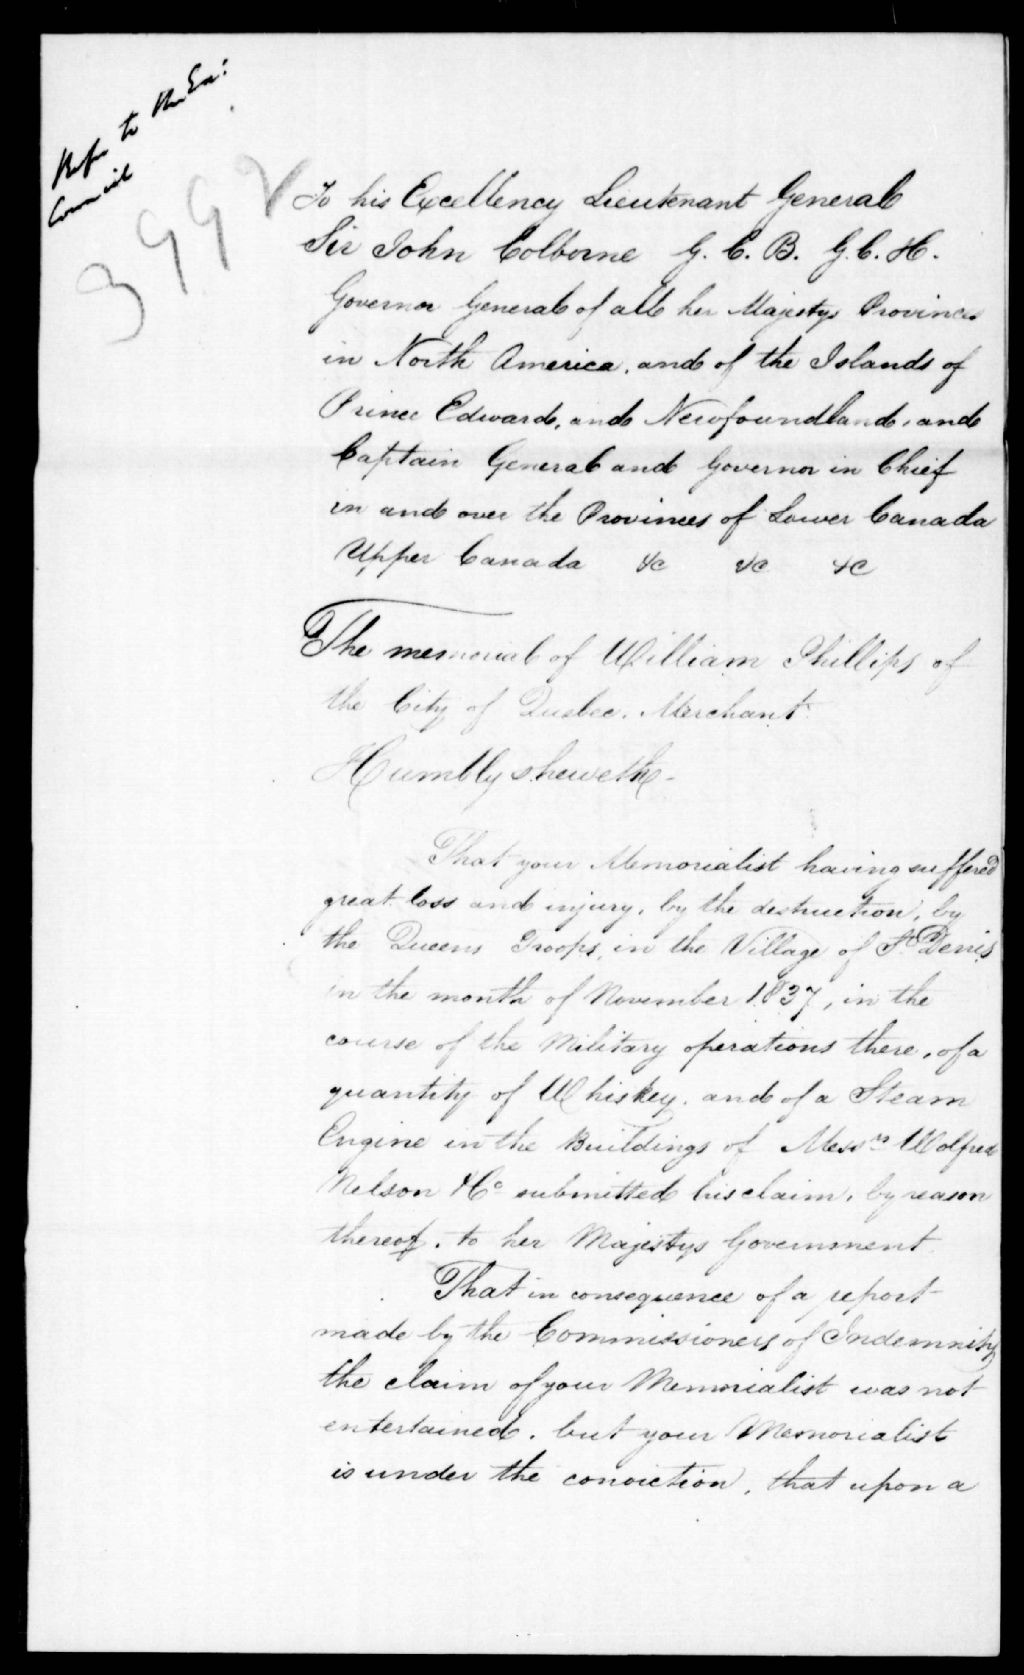 Refer to the Ex:
Council
3992
To his Excellency Lieutenant General
Sir John Colborne G. C. B. G. C. H.
Governor General of all her Majestys Provinces
in North America, and of the Islands of
Prince Edward, and Newfoundland, and
Captain General and Governor in Chief
in and over the Provinces of Lower Canada
Upper Canada &c &c &c
The memorial of William Phillips of
the City of Quebec, Merchant.
Humbly sheweth-
That your Memorialist having suffered
great loss and injury, by the destruction, by
the Queens Troops, in the Village of St. Denis
in the month of November 1837, in the
course of the Military operations there, of a
quantity of Whiskey, and of a Steam
Engine in the Buildings of Messrs Wolfred
Nelson & Co submitted his claim, by reason
thereof, to her Majestys Government
That in consequence of a report
made by the Commissioners of Indemnity
the claim of your Memorialist was not
entertained, but your Memorialist
is under the conviction, that upon a